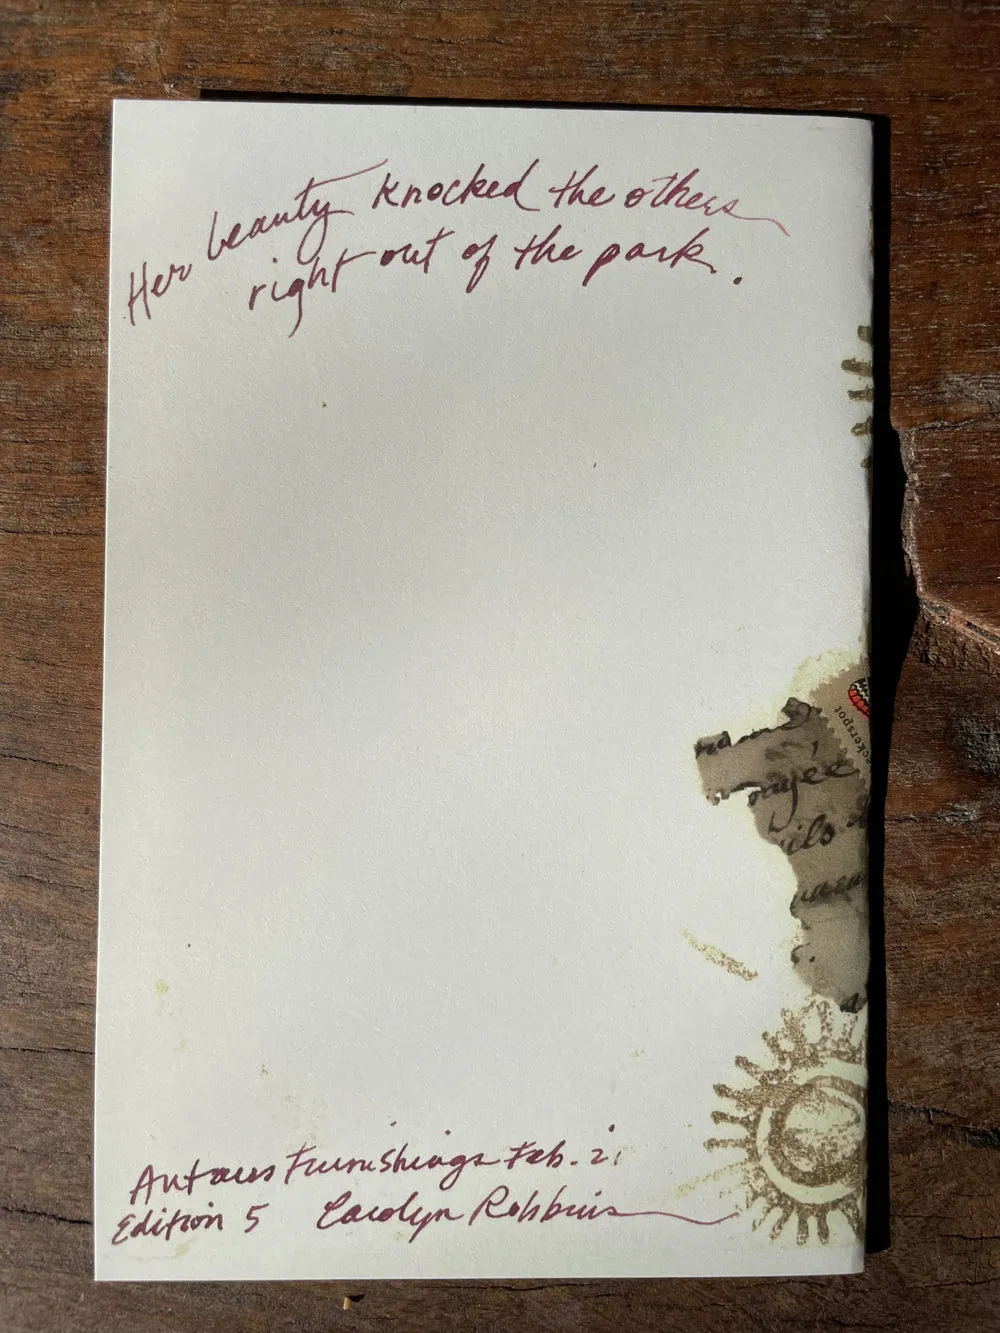 Her beauty knocked the others
right out of the park.
okerspot
Furnishings Feb. 21
Edition 5 Carolyn Robbins